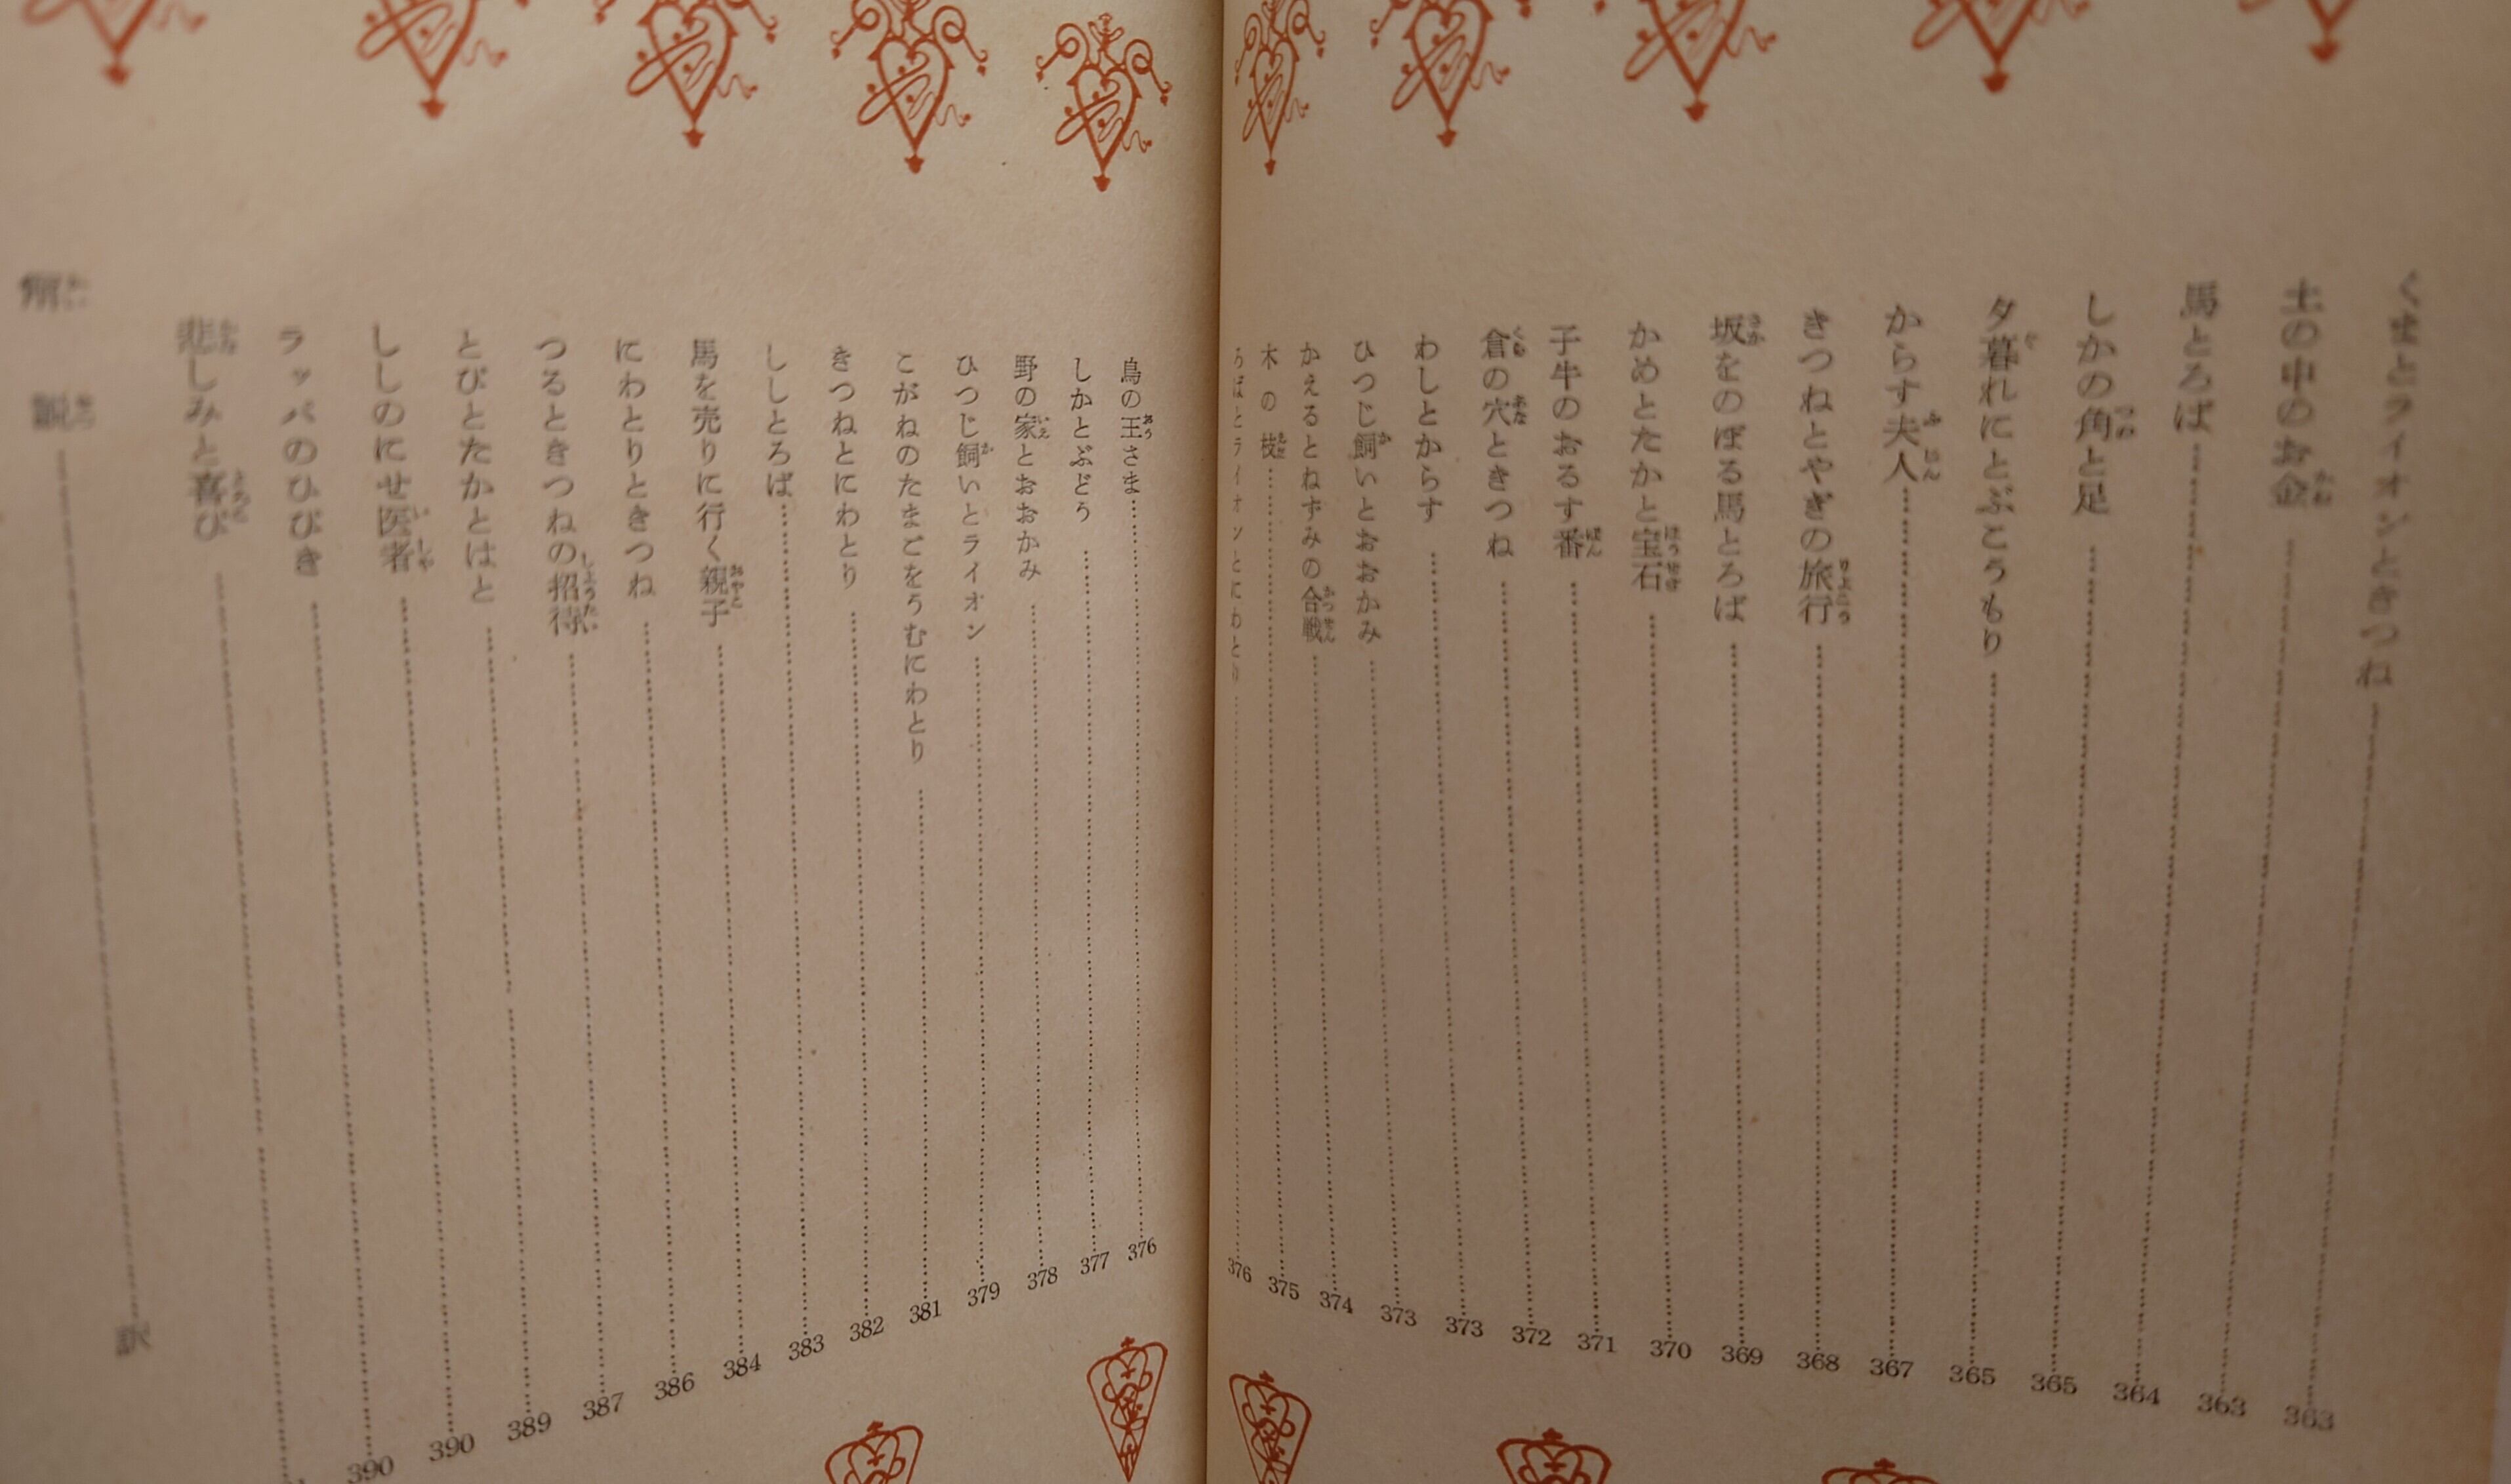 くまとライオンときつね 363
土の中のお金 363
馬とろば 364
しかの角と足 365
夕暮れにとぶこうもり 365
からす夫人 367
きつねとやぎの旅行 368
坂をのぼる馬とろば 369
かめとたかと宝石 370
子牛のおるす番 371
倉の穴ときつね 372
わしとからす 373
ひつじ飼いとおおかみ 373
かえるとねずみの合戦 374
木の枝 375
ろばとライオンとにわとり 376
鳥の王さま 376
しかとぶどう 377
野の家とおおかみ 378
ひつじ飼いとライオン 379
こがねのたまごをうむにわとり 381
きつねとにわとり 382
ししとろば 383
馬を売りに行く親子 384
にわとりときつね 386
つるときつねの招待 387
とびとたかとはと 389
ししのにせ医者 390
ラッパのひびき 390
悲しみと喜び
解説 訳